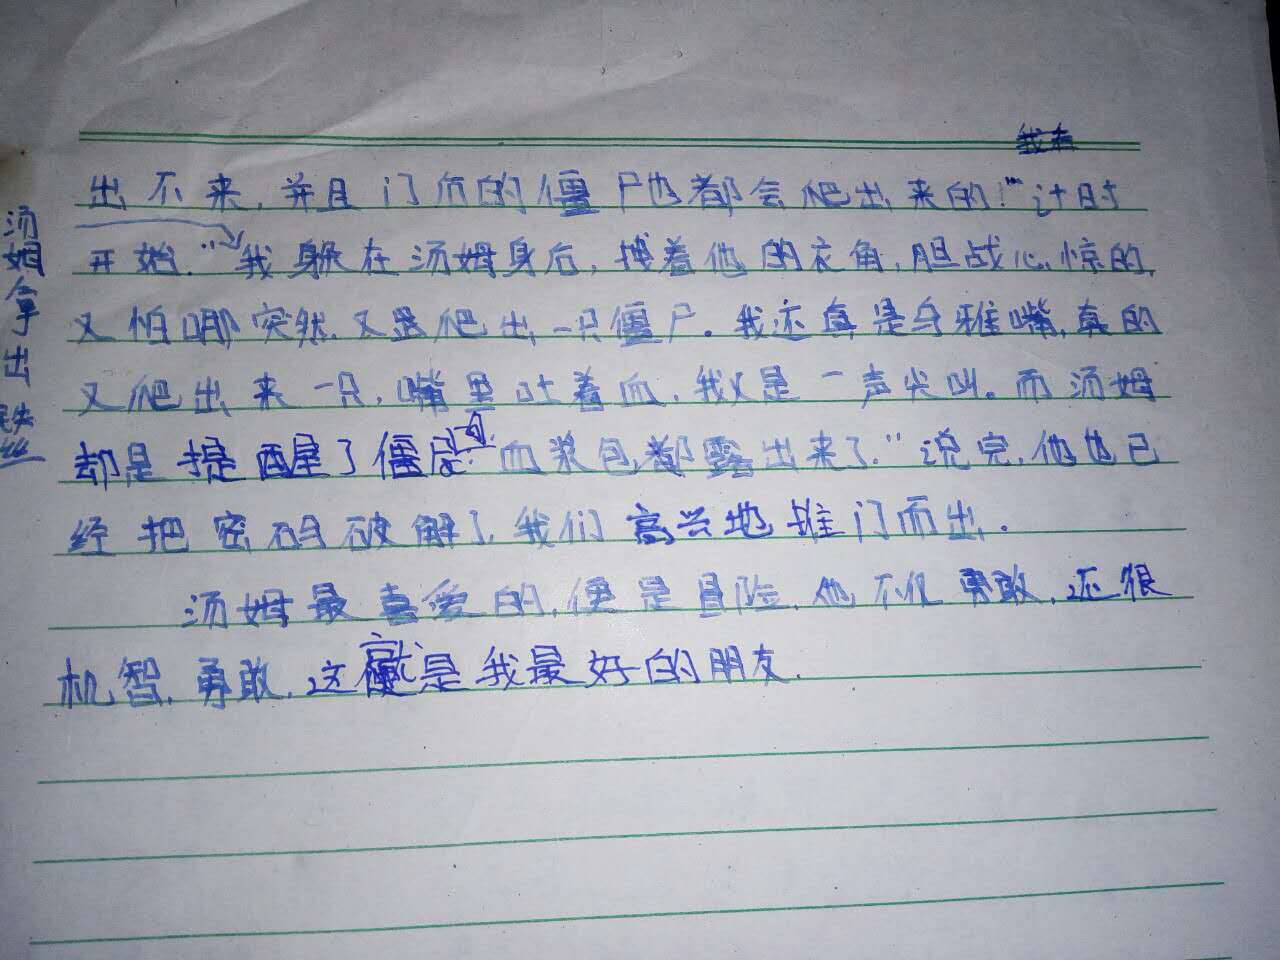 出不来,并且门后的僵尸也都会爬出来的!”“计时
开始.”我躲在汤姆身后,拽着他的衣角,胆战心惊的,
又怕哪突然又爬出一只僵尸。我还真是乌雅嘴,真的
又爬出来一只,嘴里吐着血,我又是一声尖叫。而汤姆
却是提醒了僵尸一句:“血浆包都露出来了.”说完,他也已
经把密码破解了,我们高兴地推门而出.
汤姆最喜爱的,便是冒险,他不仅勇敢,还很
机智,勇敢,这就是我最好的朋友.
汤姆拿出铁丝